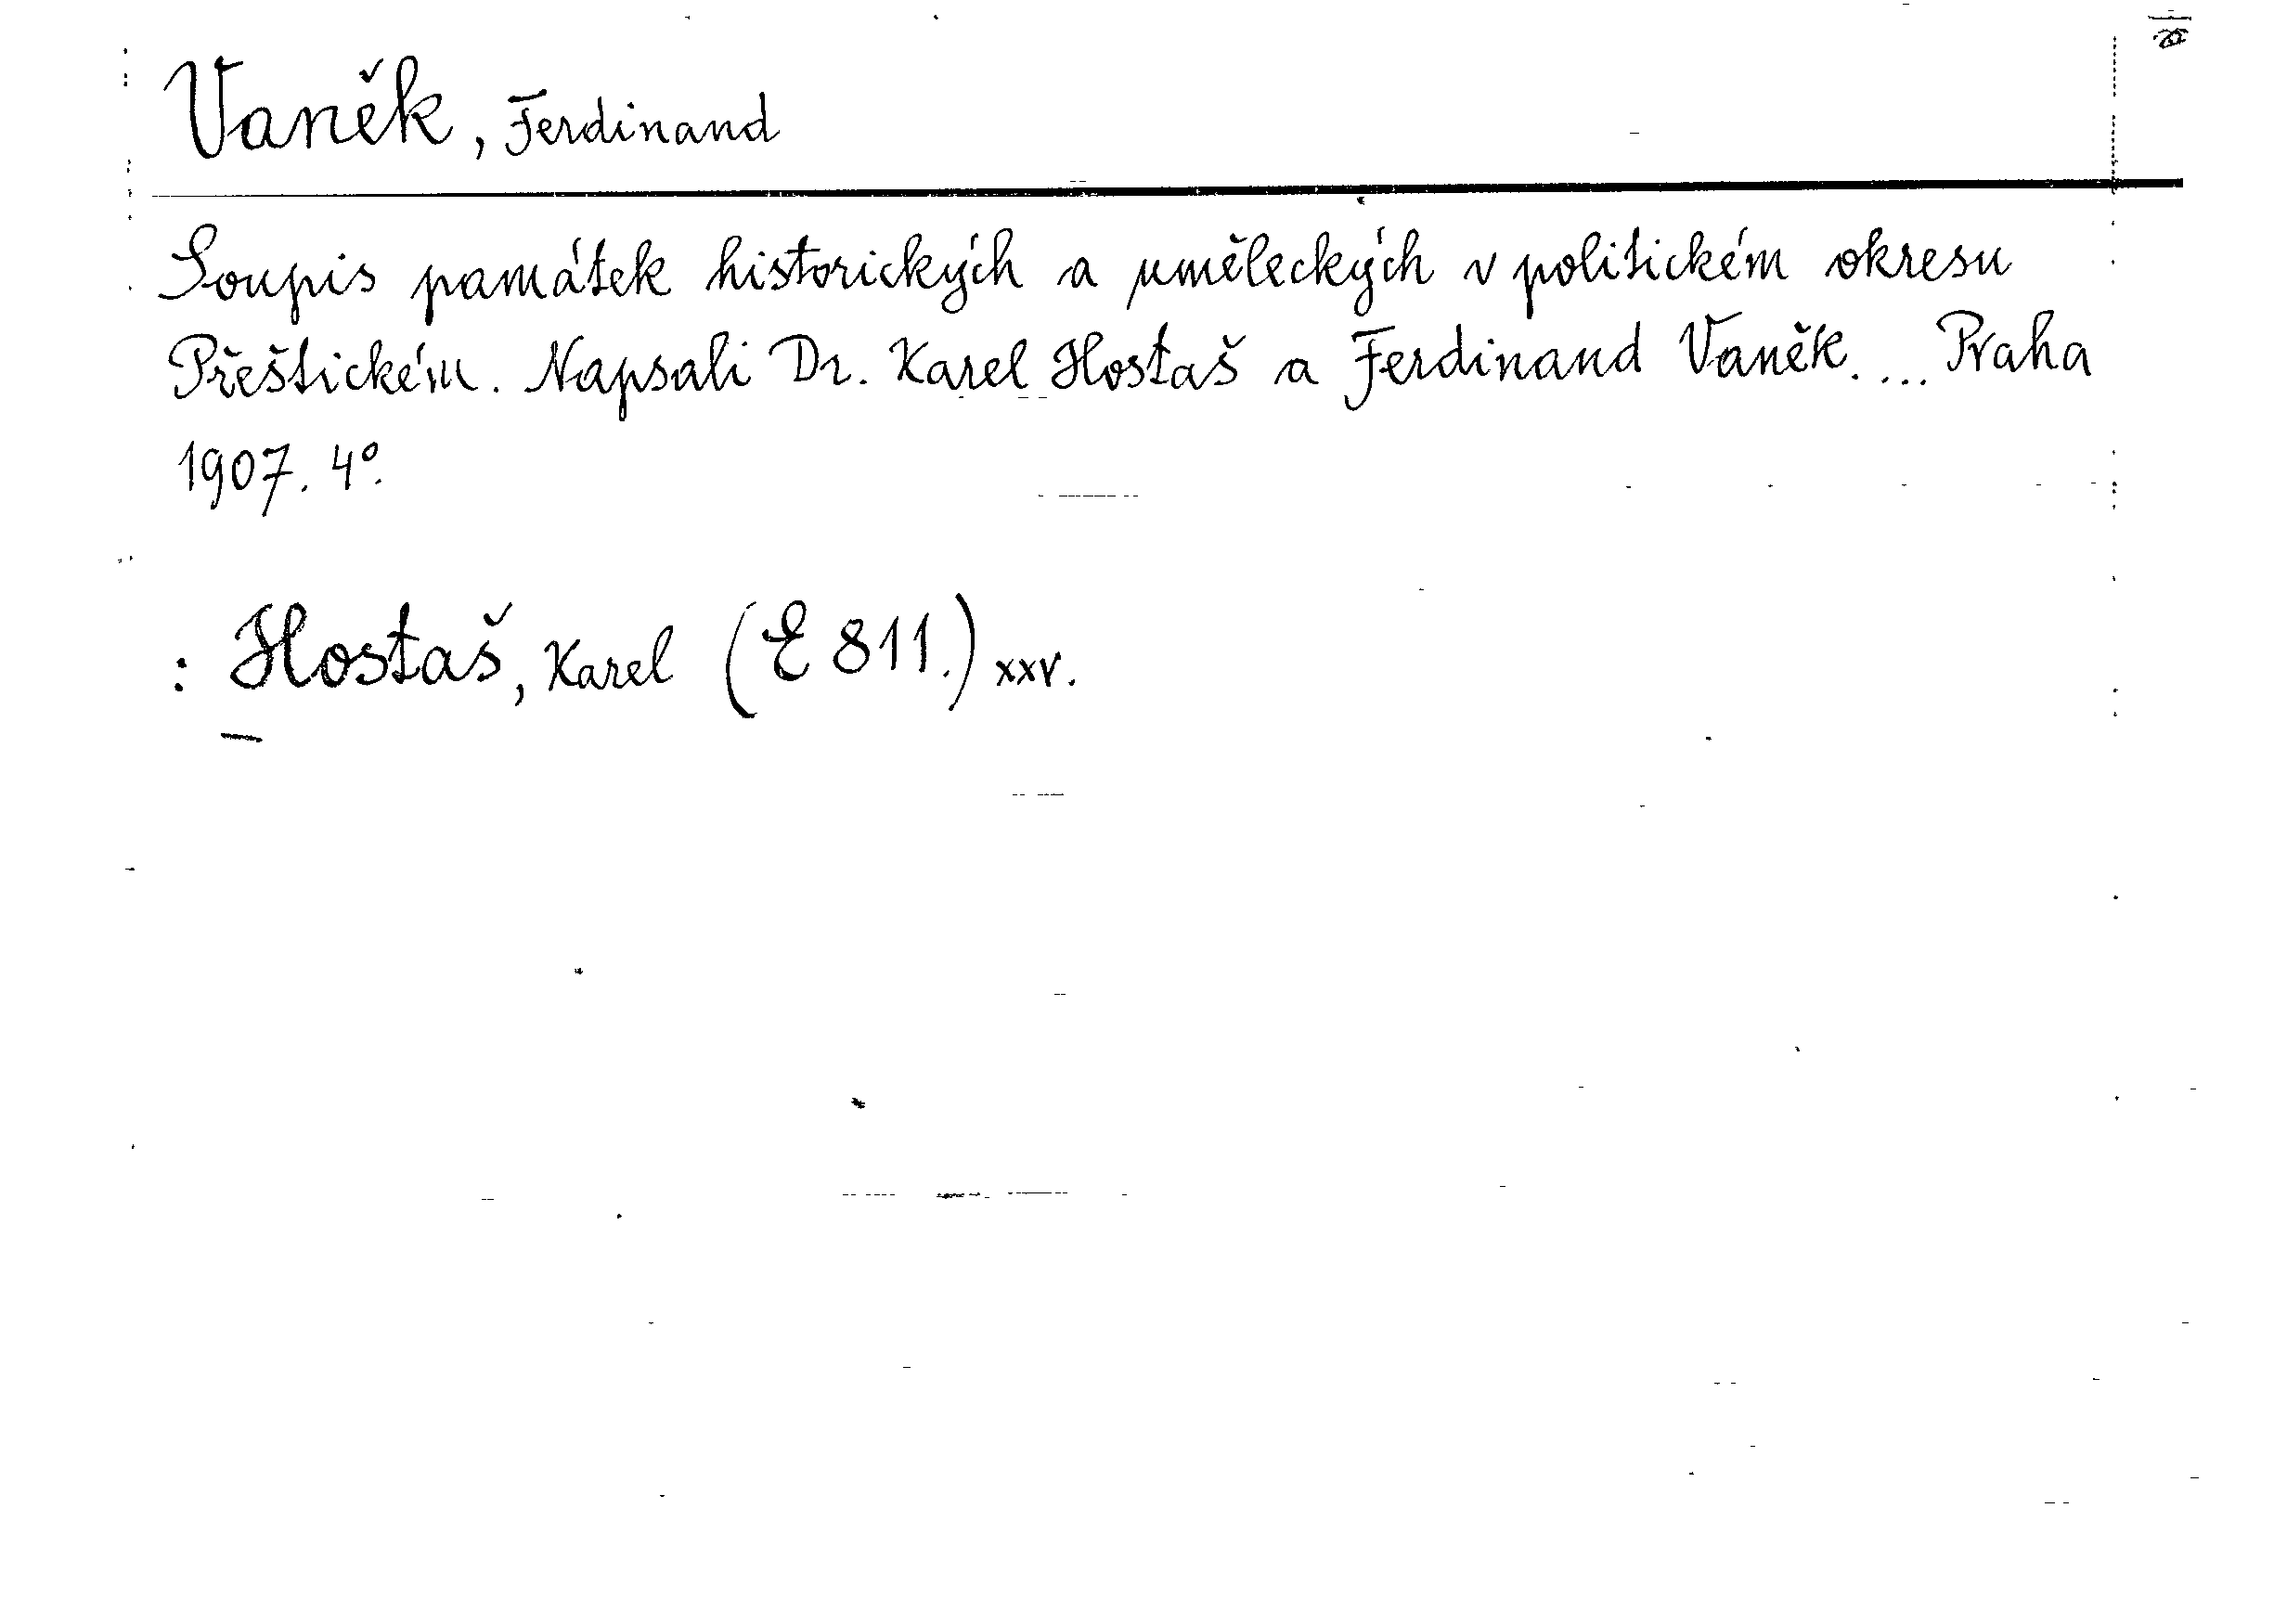 Vaněk, Ferdinand
Soupis památek historických a uměleckých v politickém okresu
Přeštickém. Napsali Dr. Karel Hostaš a Ferdinand Vaněk. ... Praha
1907. 4°.
: Hostaš, Karel (E 811.) xxv.